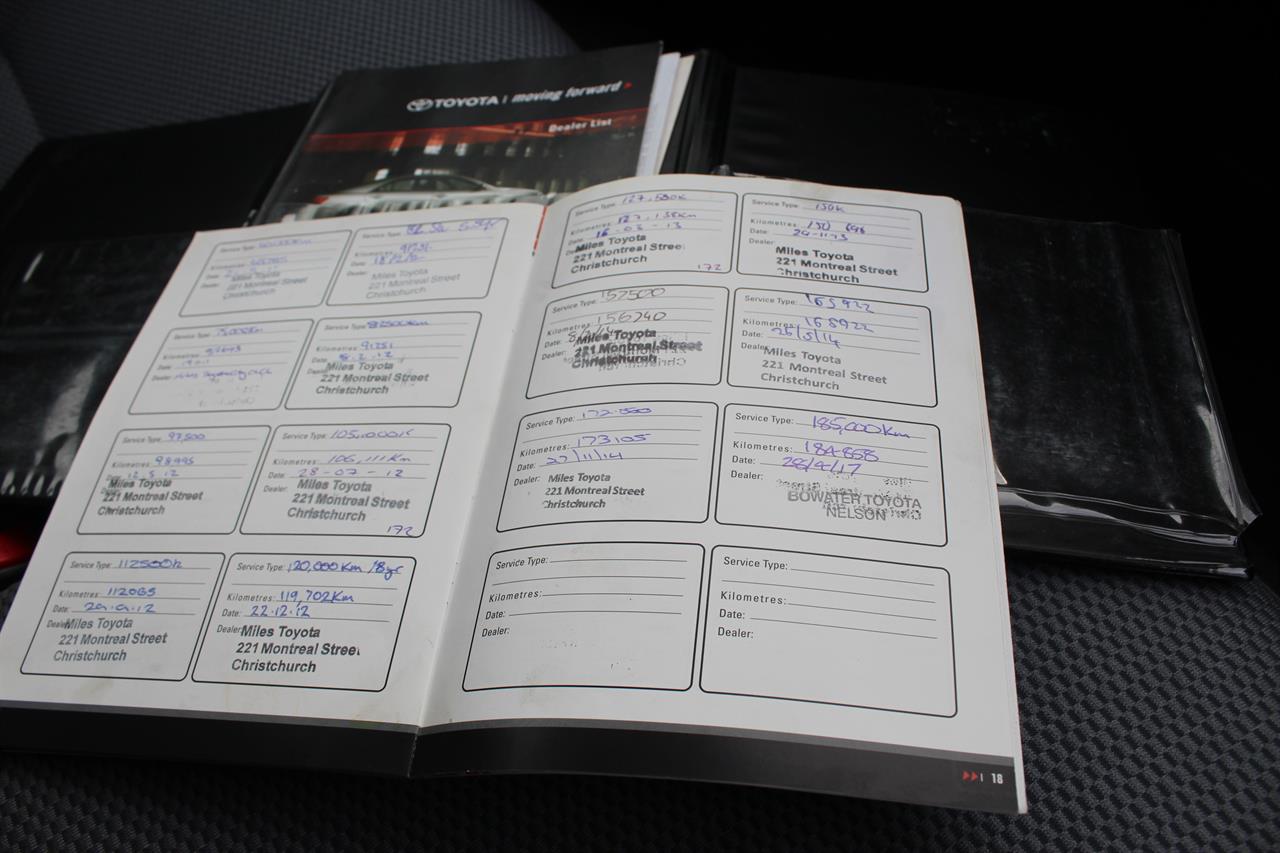 TOYOTA | moving forward
Dealer List
Service Type:
Kilometres:
Date:
221 Montreal Street
Christchurch
Service Type:
Kilometres:
Date:
Dealer:
Miles Toyota
221 Montreal Street
Christchurch
Service Type: 75000km
Kilometres:
Date:
Dealer:
Service Type: 82500km
Kilometres: 91251
Date: 8.2.12
Miles Toyota
221 Montreal Street
Christchurch
Service Type: 97,500
Kilometres: 98995
Date: 12.5.12
Miles Toyota
221 Montreal Street
Christchurch
Service Type: 105,000K
Kilometres: 106,111Km
Date: 28-07-12
Dealer: Miles Toyota
221 Montreal Street
Christchurch
172
Service Type: 112500k
Kilometres: 112065
Date: 29.9.12
Dealer: Miles Toyota
221 Montreal Street
Christchurch
Service Type: 120,000Km /8yr
Kilometres: 119,702Km
Date: 22.12.12
Dealer: Miles Toyota
221 Montreal Street
Christchurch
Service Type: 127,500K
Kilometres: 127,138Km
Date: 16-03-13
Dealer: Miles Toyota
221 Montreal Street
Christchurch
172
Service Type: 150K
Kilometres:
Date:
Dealer:
Miles Toyota
221 Montreal Street
Christchurch
Service Type: 157500
Kilometres: 156240
Date:
Dealer: Miles Toyota
221 Montreal Street
Christchurch
Service Type: 165922
Kilometres: 165922
Date: 26/5/14
Dealer:
Miles Toyota
221 Montreal Street
Christchurch
Service Type: 172.500
Kilometres: 173105
Date: 27/11/14
Dealer: Miles Toyota
221 Montreal Street
Christchurch
Service Type: 185,000Km
Kilometres: 184-868
Date:
Dealer:
BOWATER TOYOTA
NELSON
Service Type:
Kilometres:
Date:
Dealer:
Service Type:
Kilometres:
Date:
Dealer:
18